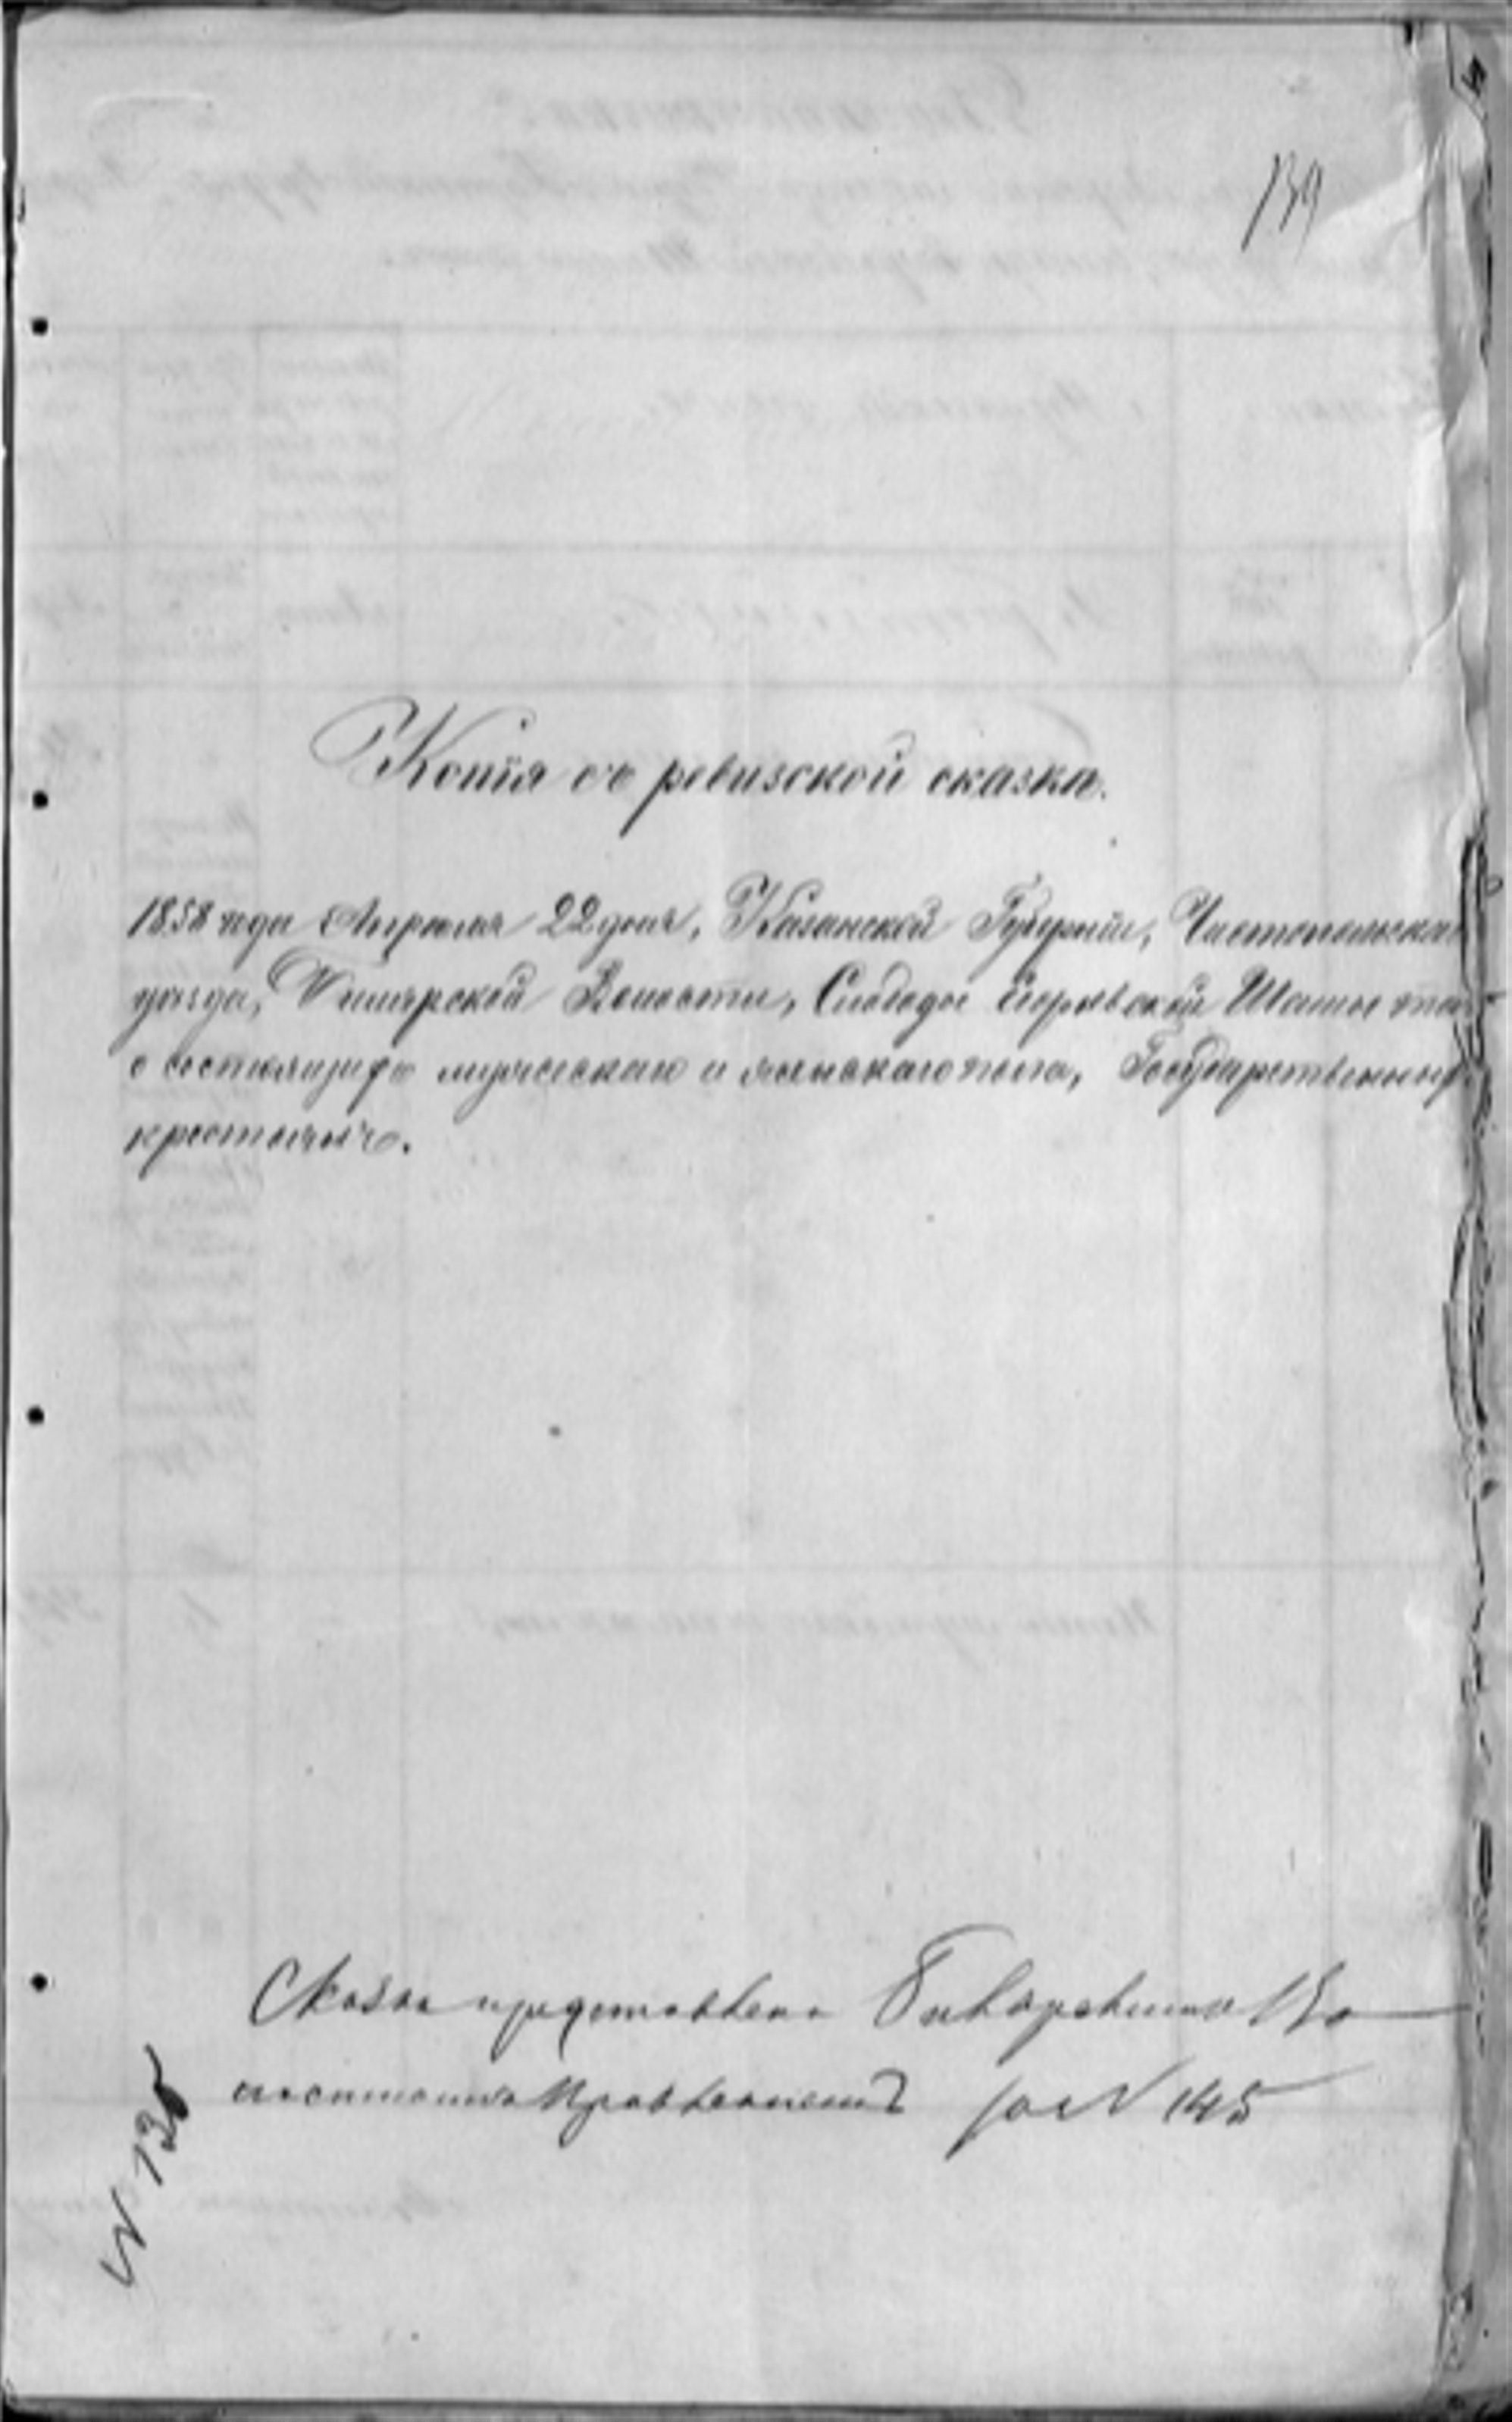 139
Копія съ ревизской сказки.
1858 года Апрѣля 22 дня, Казанской Губерніи, Чистопольска
уѣзда, Волости, Слободы Черебской Шамы
о состоящихъ мужескаго и женскаго пола, Государственных
крестьянъ.
Сказка представлена 15
за N 145
N 136